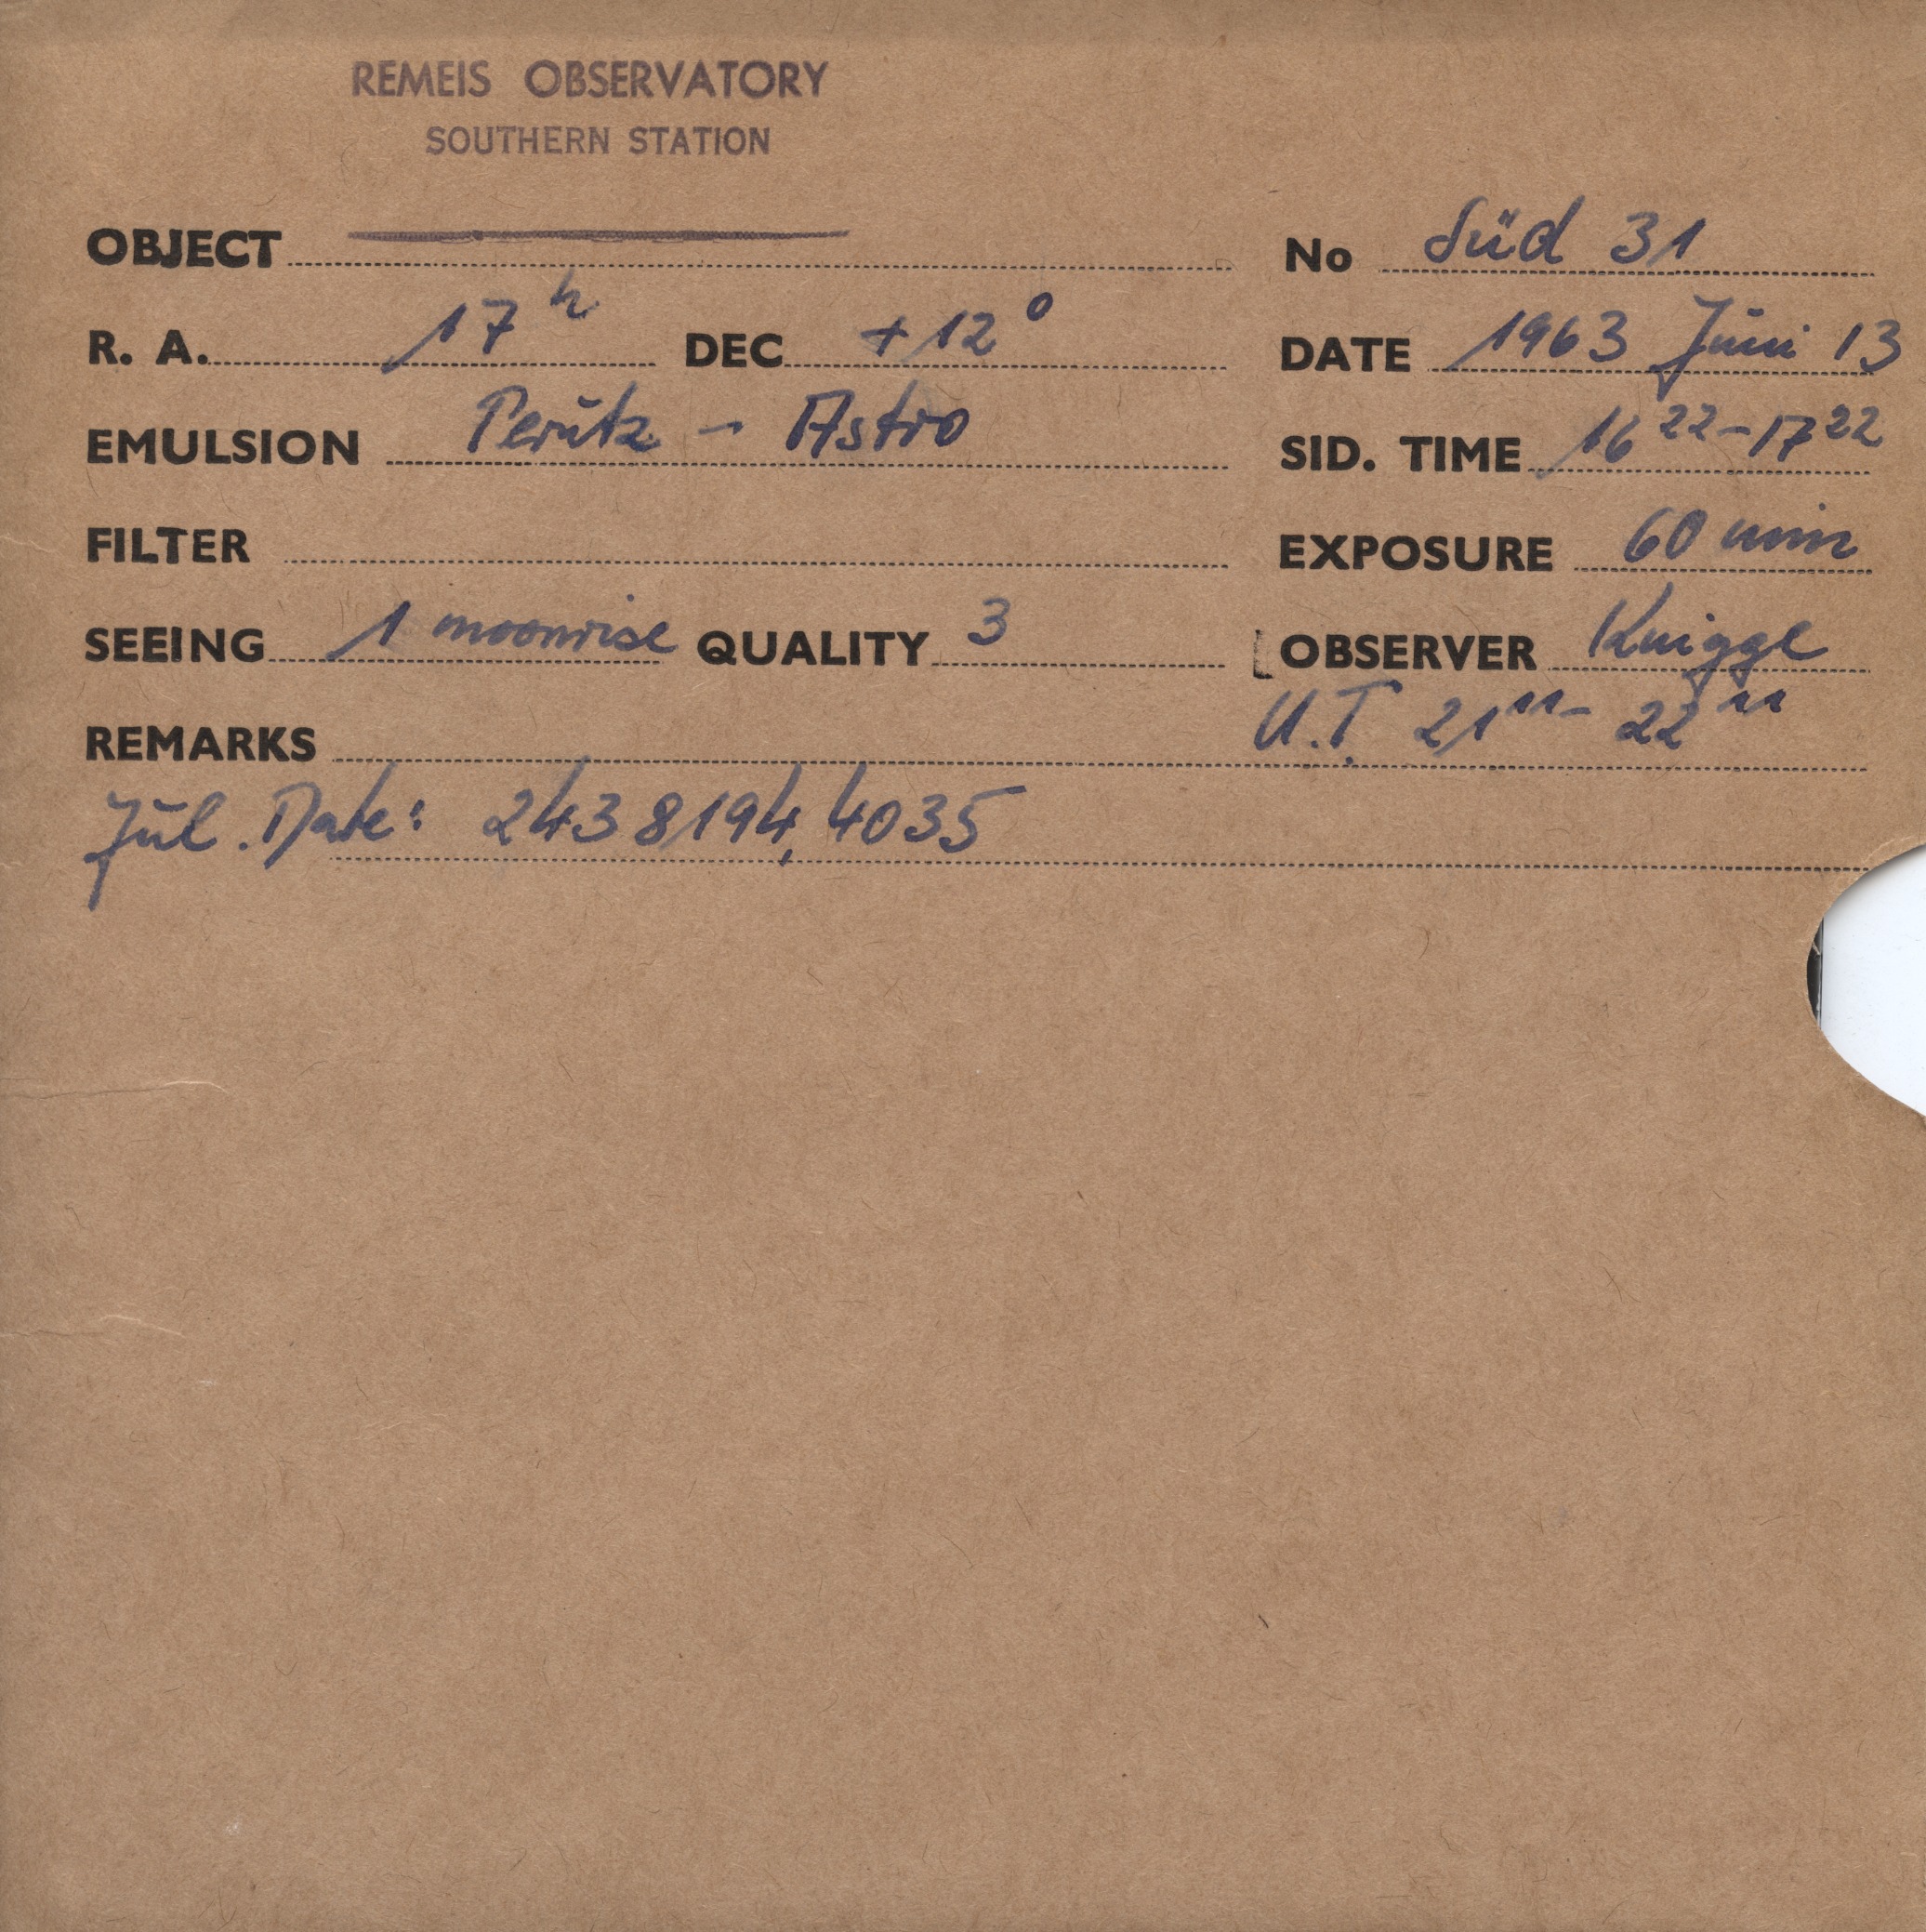 REMEIS OBSERVATORY
SOUTHERN STATION
OBJECT No Süd 31
R. A. 17h DEC +12° DATE 1963 Juni 13
EMULSION Perutz - Astro SID. TIME 16 22 - 17 22
FILTER EXPOSURE 60 min
SEEING 1 moonrise QUALITY 3 OBSERVER Knigge
REMARKS U.T. 21 11 - 22 11
Jul. Date: 243 8194,4035